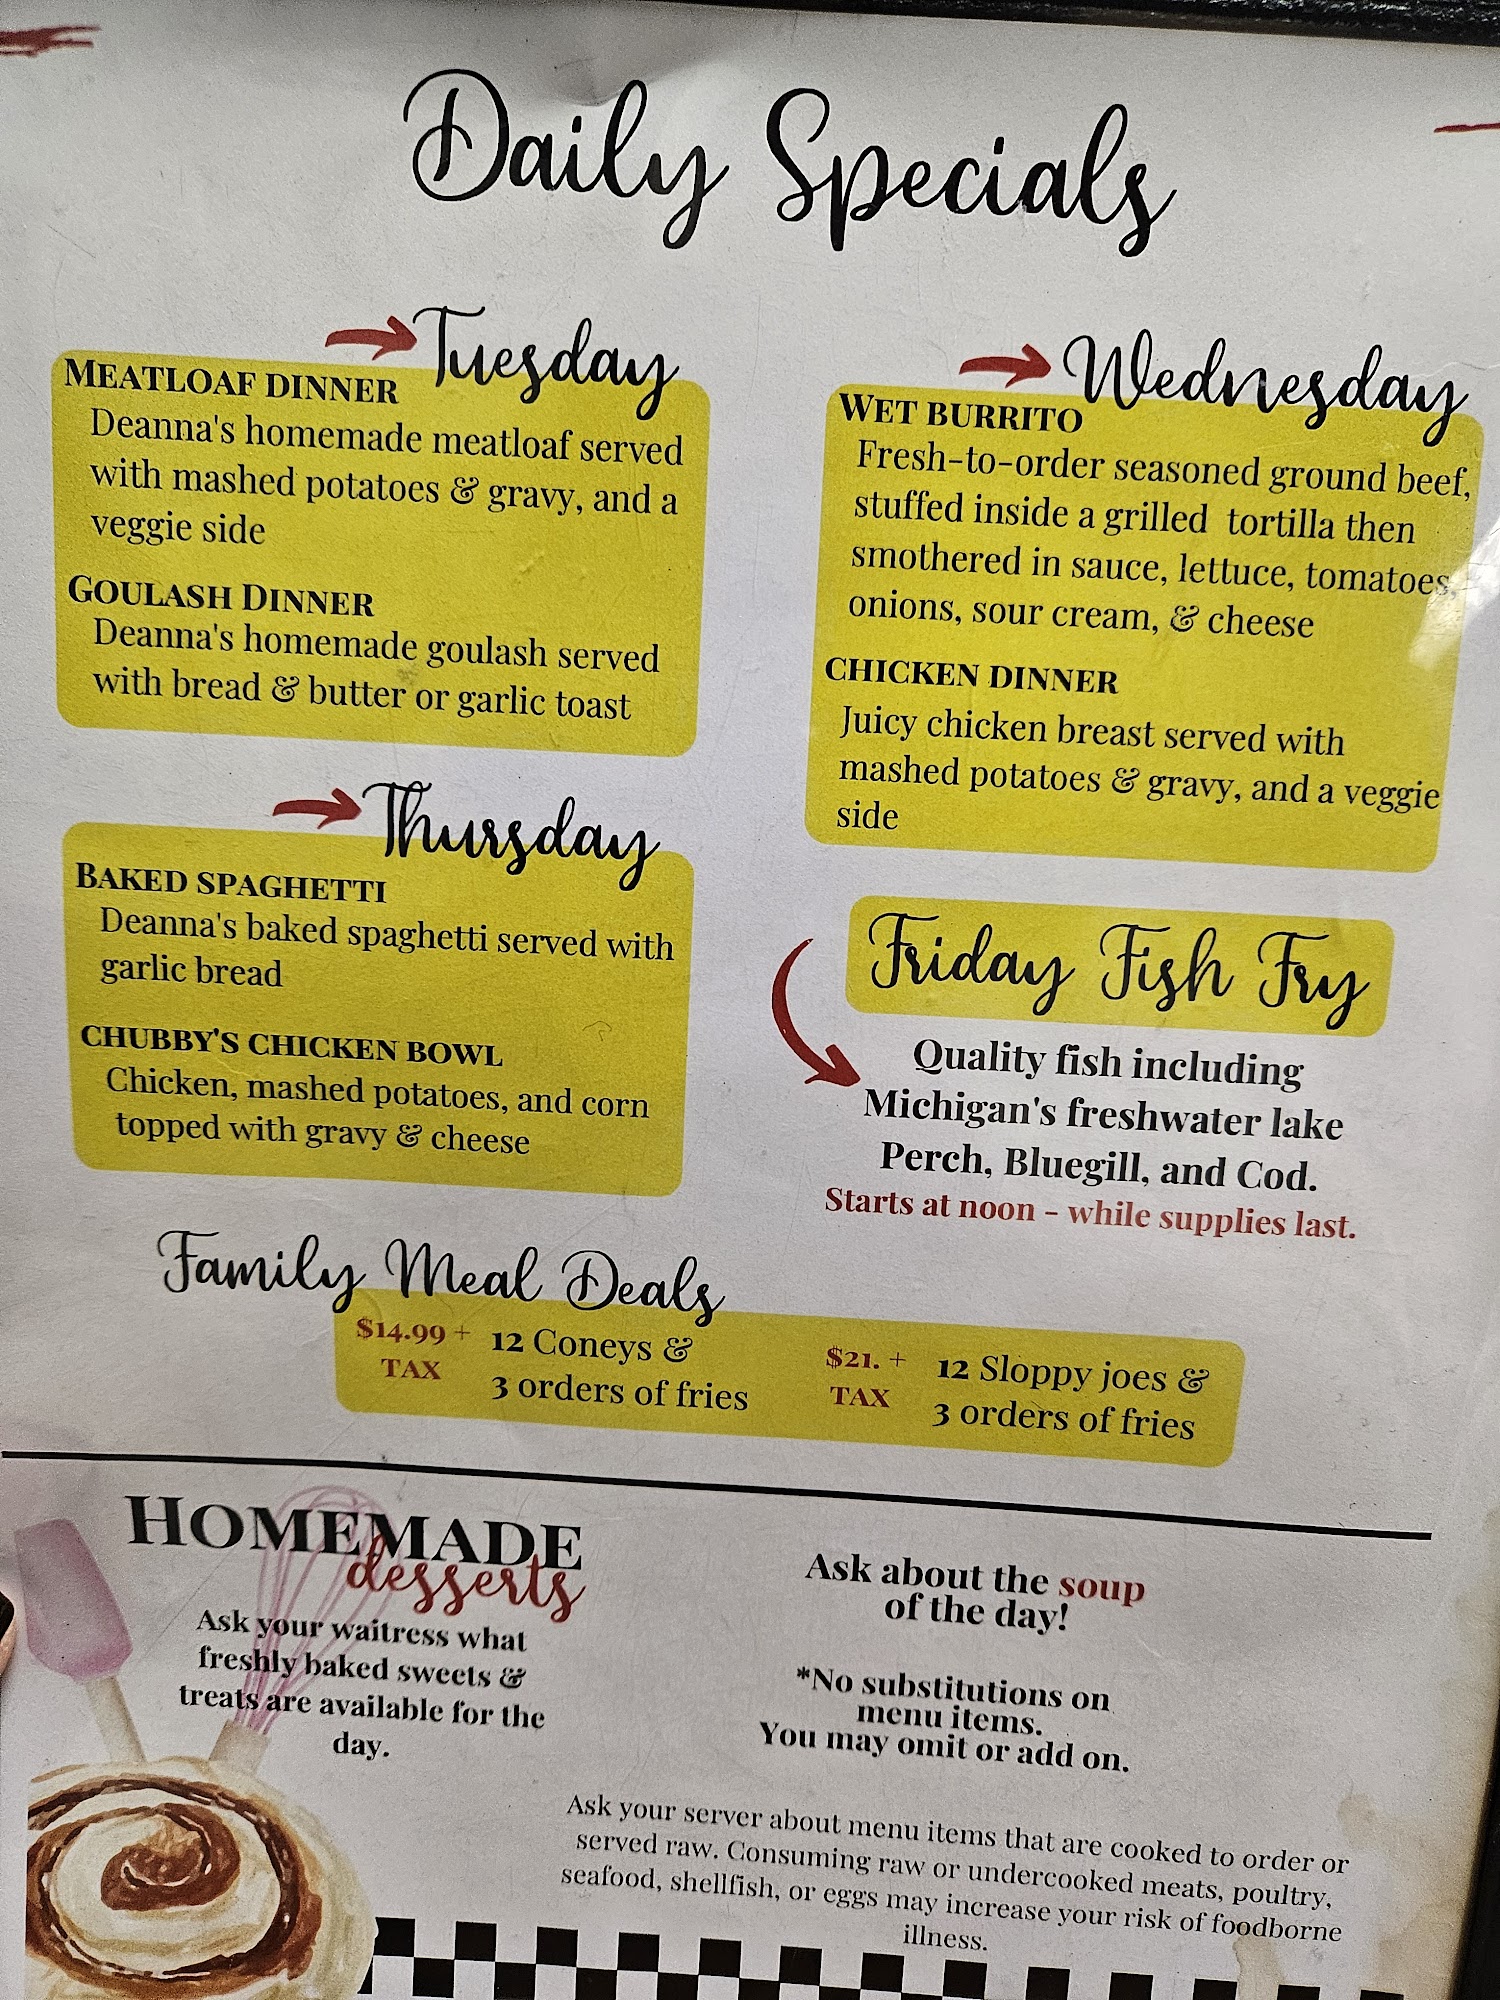 Daily Specials
Tuesday
MEATLOAF DINNER
Deanna's homemade meatloaf served
with mashed potatoes & gravy, and a
veggie side
GOULASH DINNER
Deanna's homemade goulash served
with bread & butter or garlic toast
Wednesday
WET BURRITO
Fresh-to-order seasoned ground beef,
stuffed inside a grilled tortilla then
smothered in sauce, lettuce, tomatoes,
onions, sour cream, & cheese
CHICKEN DINNER
Juicy chicken breast served with
mashed potatoes & gravy, and a veggie
side
Thursday
BAKED SPAGHETTI
Deanna's baked spaghetti served with
garlic bread
CHUBBY'S CHICKEN BOWL
Chicken, mashed potatoes, and corn
topped with gravy & cheese
Friday Fish Fry
Quality fish including
Michigan's freshwater lake
Perch, Bluegill, and Cod.
Starts at noon - while supplies last.
Family Meal Deals
$14.99 + TAX
12 Coneys &
3 orders of fries
$21. + TAX
12 Sloppy joes &
3 orders of fries
HOMEMADE
desserts
Ask your waitress what
freshly baked sweets &
treats are available for the
day.
Ask about the soup
of the day!
*No substitutions on
menu items.
You may omit or add on.
Ask your server about menu items that are cooked to order or
served raw. Consuming raw or undercooked meats, poultry,
seafood, shellfish, or eggs may increase your risk of foodborne
illness.